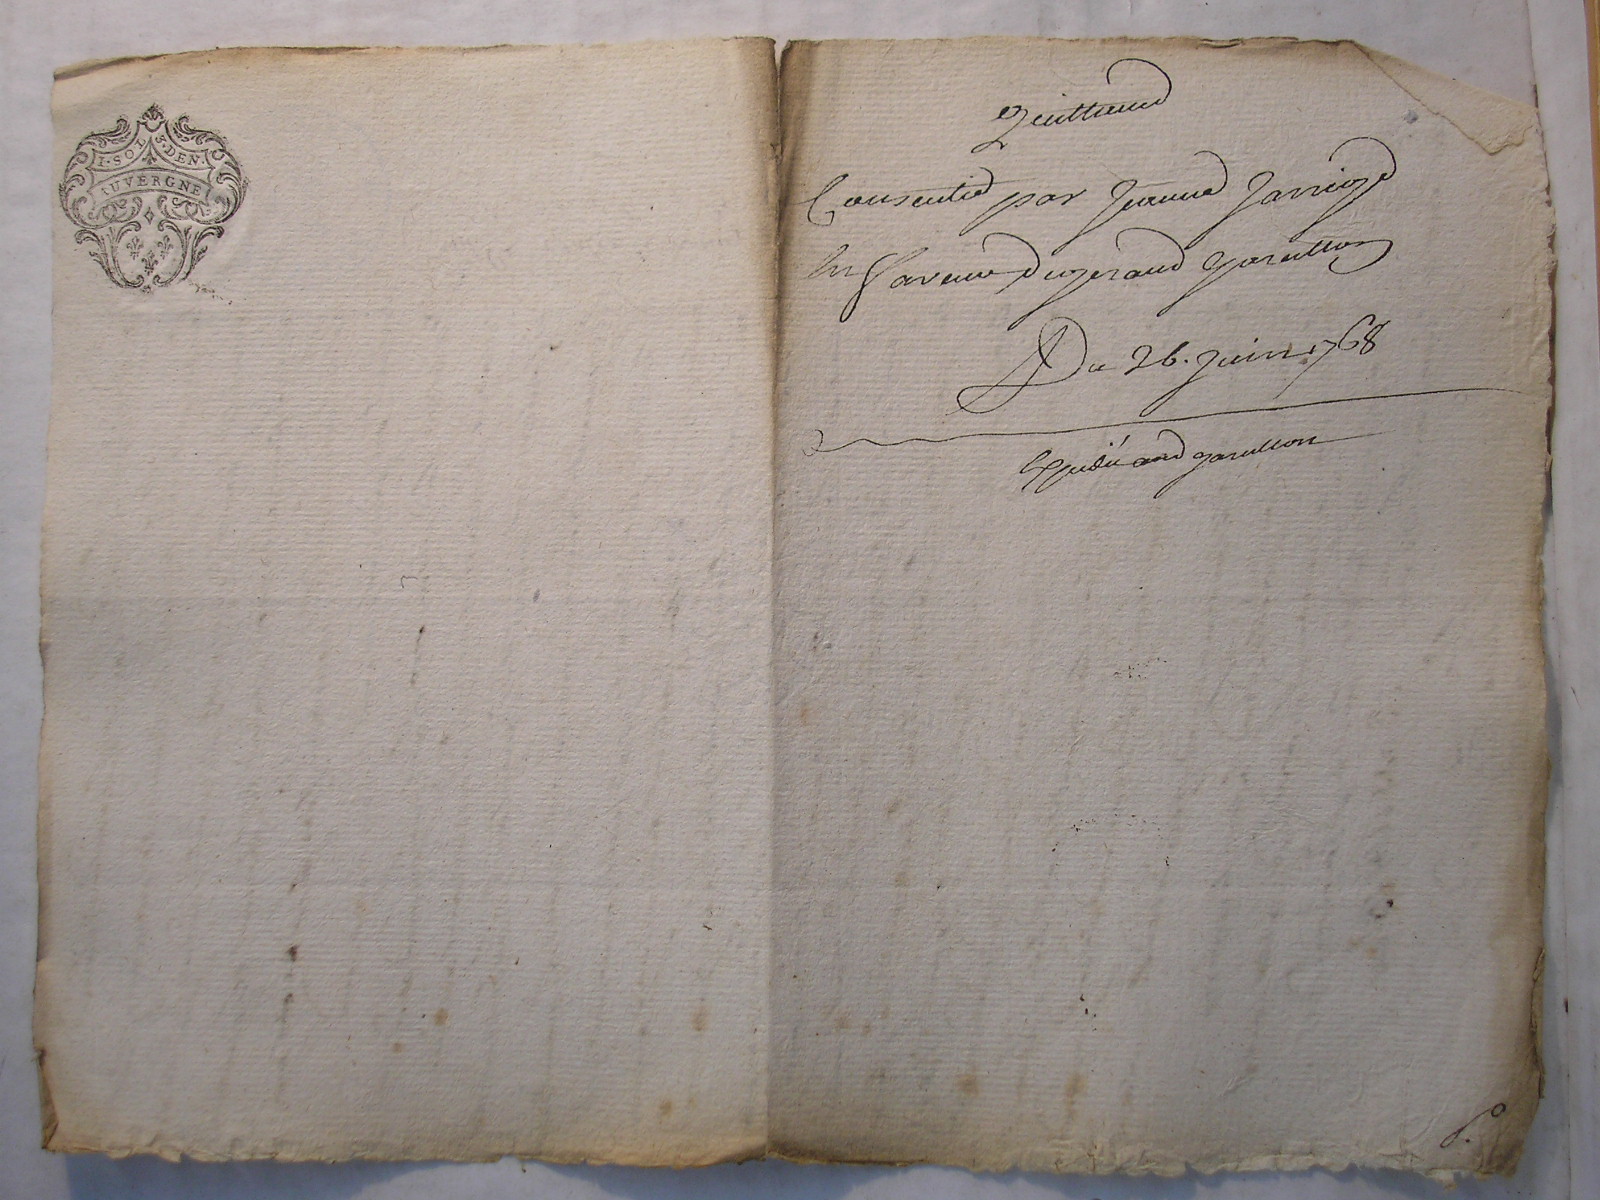 I·SOL 8·DEN·
AUVERGNE
Quittance
Consentie par Jeanne Jarrige
En faveur de gerand garitton
Du 26. Juin 1768
Expedié aud garitton